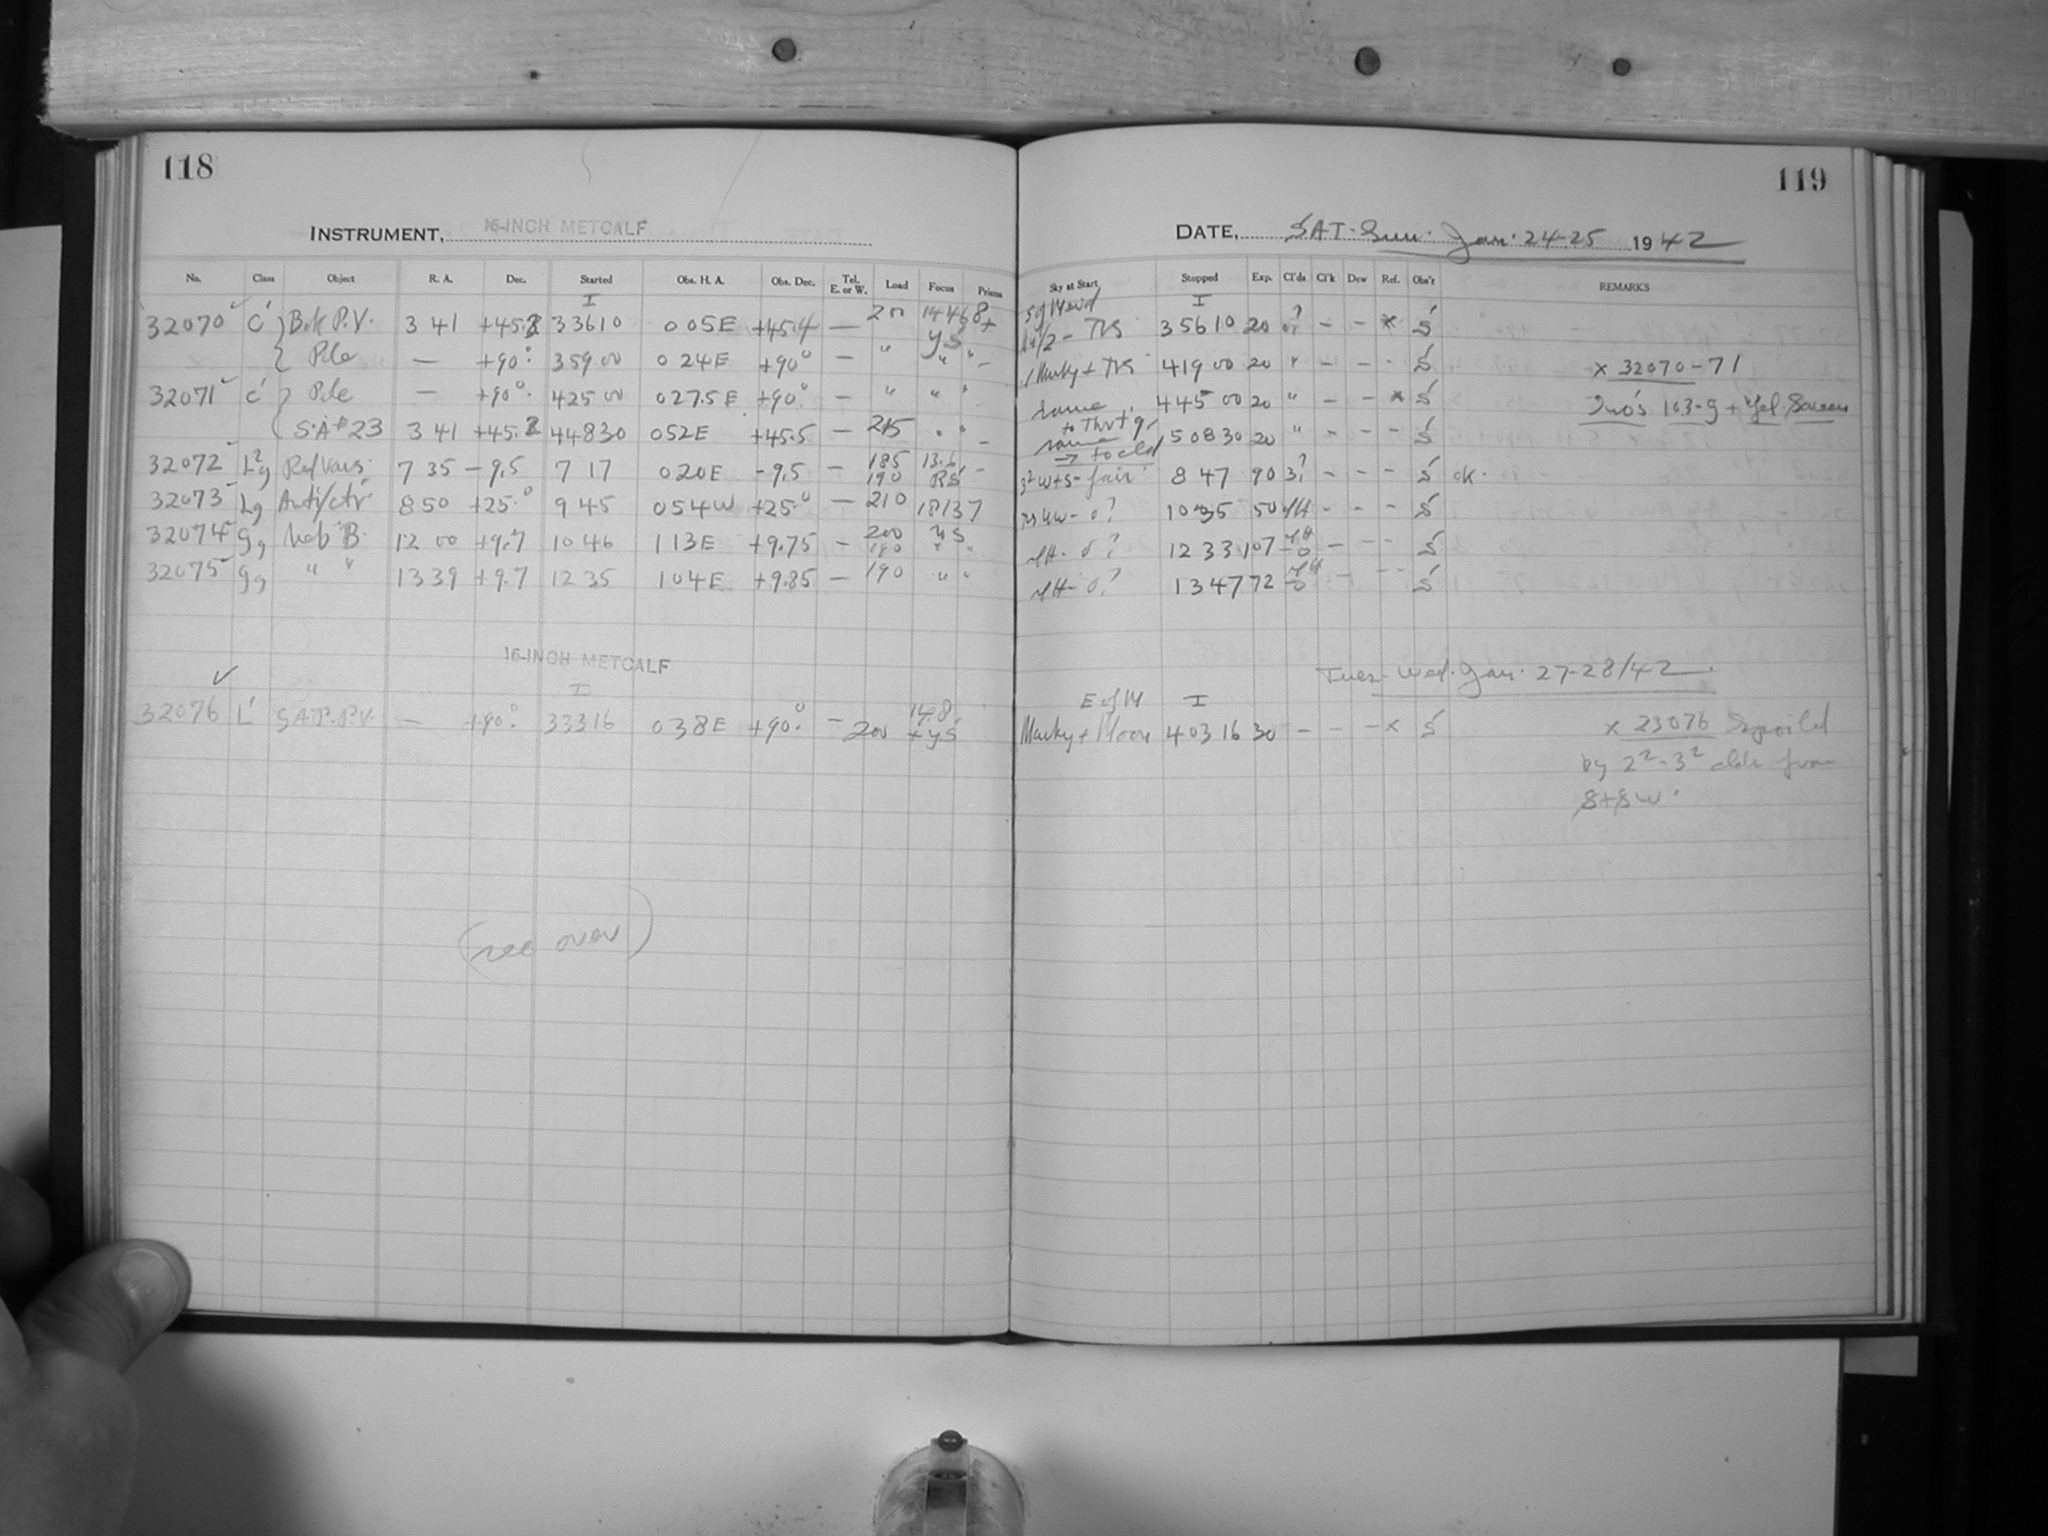 118
INSTRUMENT, 16-INCH METCALF
No. Class Object R. A. Dec. Started Obs. H. A. Obs. Dec. Tel. E. or W. Load Focus Prisms
I
32070 C' Bok P.V. 3 41 +45. 3 36 10 0 05 E +45.4 —
Pole — +90° 3 59 00 0 24 E +90° — " " "
32071 C' Pole — +90° 4 25 00 0 27.5 E +90° — " " "
S.A. #23 3 41 +45. 4 48 30 0 52 E +45.5 — 215 " "
32072 7 35 -9.5 7 17 0 20 E -9.5 — 185 190 13.6 RS –
32073 Lg 8 50 +25.° 9 45 0 54 W +25.° — 210 18137
32074 12 00 +9.7 10 46 1 13 E +9.75 — 200 190 yS " "
32075 " " 13 39 +9.7 12 35 1 04 E +9.85 — 190 " "
16-INCH METCALF
I
32076 L' S.A.P. P.V. — +90° 3 33 16 0 38 E +90.° — 200 14.8 + yS
(see over)
119
DATE, SAT-Sun. Jan. 24-25 1942
Sky at Start Stopped Exp. Cl'ds Cl'k Dew Ref. Obs'r REMARKS
I
3 56 10 20 0? – – x S
Murky + 4 19 00 20 " – – – S x 32070-71
same 4 45 00 20 " – – x S Two's 103-g + Yel. Screen
same → to cld 5 08 30 20 " – – – S
3² W+S- fair 8 47 90 3? – – – S ok.
10 35 50 – – – S
0? 12 33 107 – – – S
0? 13 47 72 – – – S
Tues-Wed. Jan. 27-28/42
E of M I
Murky + Moon 4 03 16 30 – – – x S x 23076 Spoiled
by 2²-3² clds from
S+SW.